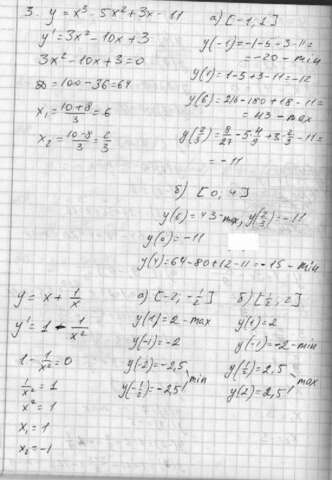 3. y = x³ - 5x² + 3x - 11
y' = 3x² - 10x + 3
3x² - 10x + 3 = 0
D = 100 - 36 = 64
x₁ = (10+8)/3 = 6
x₂ = (10-8)/3 = 2/3
а) [-1, 2]
y(-1) = -1 - 5 - 3 - 11 =
= -20 - min
y(1) = 1 - 5 + 3 - 11 = -12
y(6) = 216 - 180 + 18 - 11 =
= 43 - max
y(2/3) = 8/27 - 5·4/9 + 3·2/3 - 11 =
= -11
б) [0, 4]
y(6) = 43 - max, y(2/3) = -11
y(0) = -11
y(4) = 64 - 80 + 12 - 11 = -15 - min
y = x + 1/x
y' = 1 - 1/x²
1 - 1/x² = 0
1/x² = 1
x² = 1
x₁ = 1
x₂ = -1
а) [-2, -1/2]
y(1) = 2 - max
y(-1) = -2
y(-2) = -2,5
y(-1/2) = -2,5
min
б) [1/2, 2]
y(1) = 2
y(-1) = -2 - min
y(1/2) = 2,5
y(2) = 2,5
max